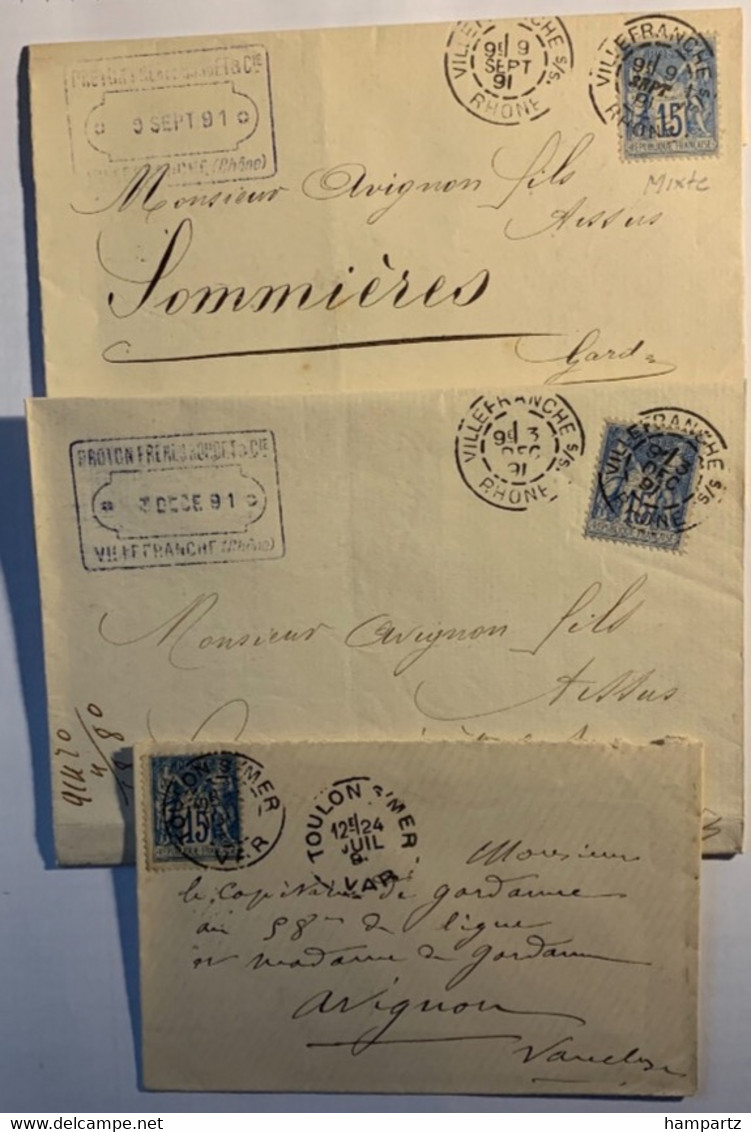 PROTON FRERES BORDET & Cie
9 SEPT 91
VILLEFRANCHE (Rhône)
VILLEFRANCHE S/S.
9E 9
SEPT
91
RHONE
VILLEFRANCHE S/S.
9E 9
SEPT
91
RHONE
15
REPUBLIQUE FRANÇAISE
Mixte
Monsieur Avignon fils
Aissus
Sommières
Gard
PROTON FRERES BORDET & Cie
3 DECE 91
VILLEFRANCHE (Rhône)
VILLEFRANCHE S/S.
9E 3
DEC
91
RHONE
VILLEFRANCHE S/S.
9E 3
DEC
91
RHONE
15
Monsieur Avignon fils
Aissus
91420
480
TOULON S/MER
VAR
15
TOULON S/MER
12E 24
JUIL
VAR
Monsieur
le Capitaine de Gordanne
au 58me de ligne
et madame de Gordanne
Avignon
Vaucluse
hampartz